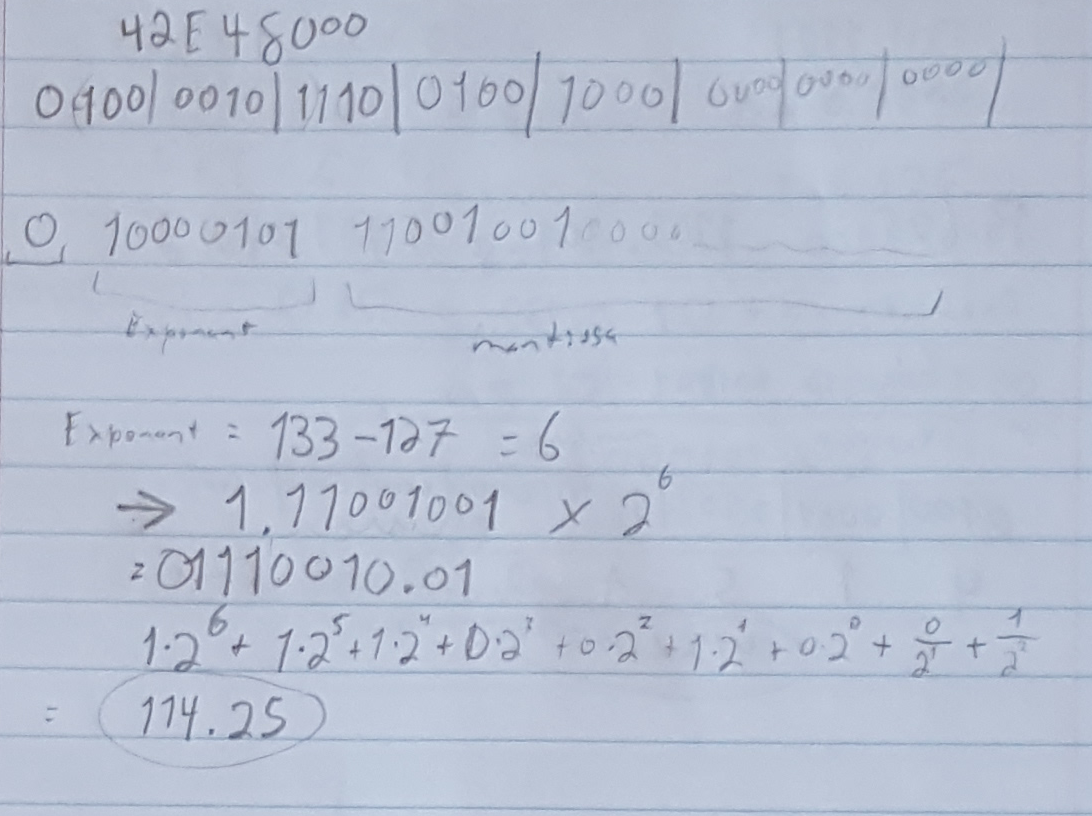 42E48000
0100|0010|1110|0100|1000|0000|0000|0000|
0 10000101 110010010000
Exponent mantissa
Exponent = 133-127 = 6
→ 1.11001001 x 2^6
=01110010.01
1·2^6 + 1·2^5 + 1·2^4 + 0·2^3 + 0·2^2 + 1·2^1 + 0·2^0 + 0/2^1 + 1/2^2
= 114.25